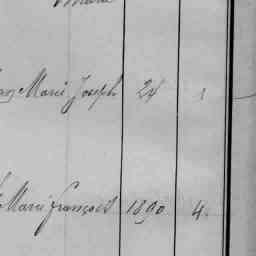 Marie Joseph 24 1
Marie françois 1890 4.